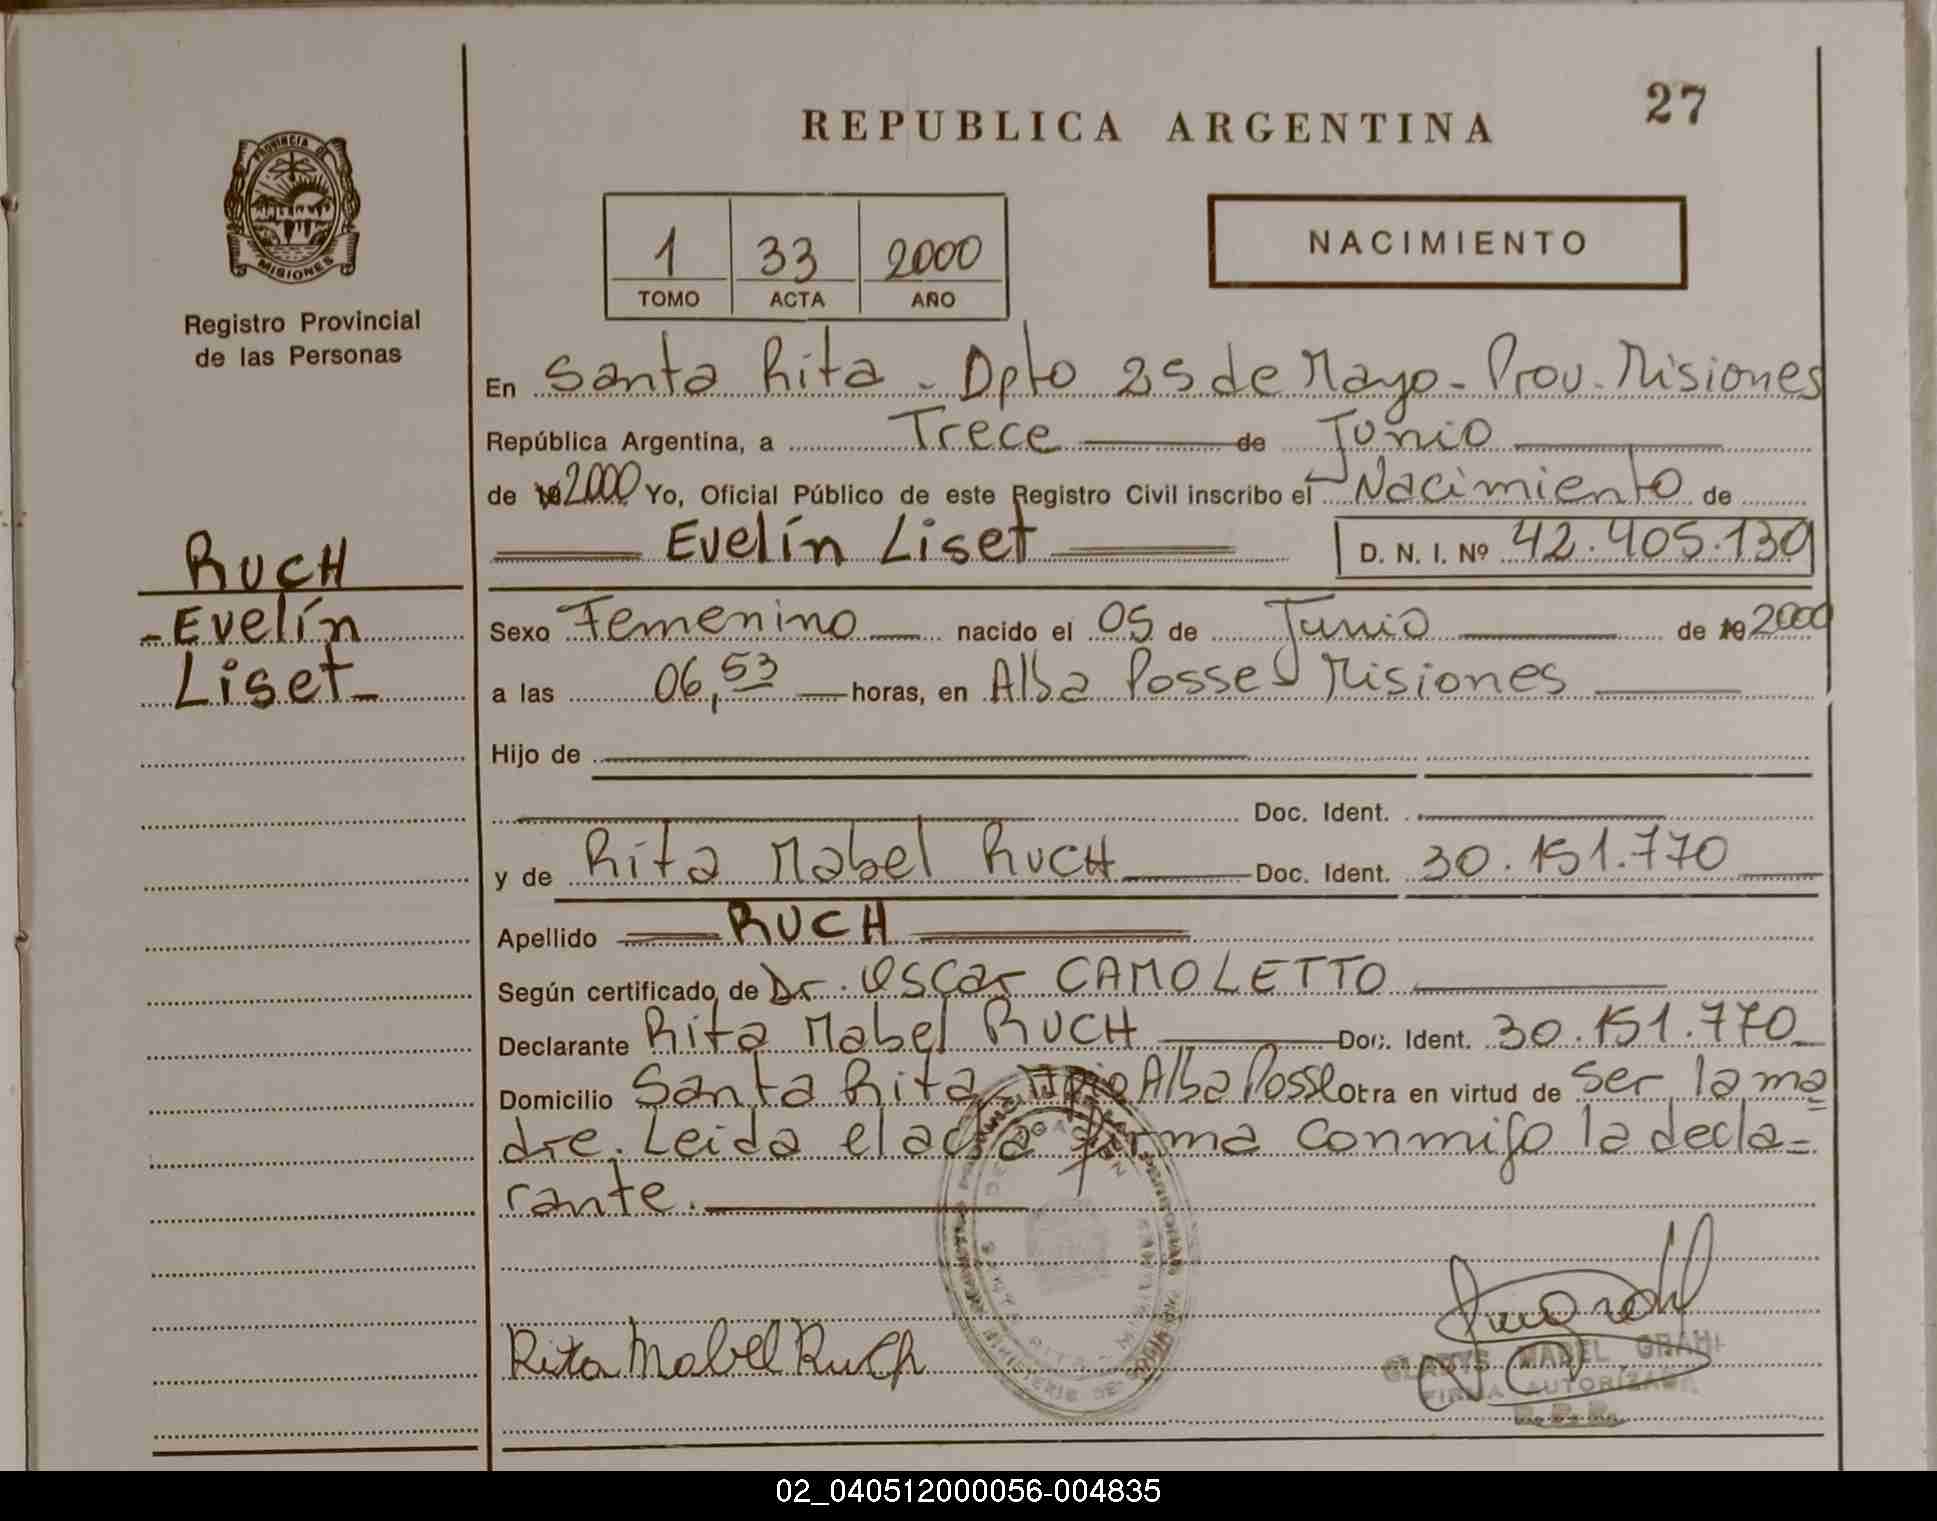 REPUBLICA ARGENTINA
27
PROVINCIA DE
MISIONES
Registro Provincial
de las Personas
1 33 2000
TOMO ACTA AÑO
NACIMIENTO
En Santa Rita - Dpto 25 de Mayo - Prov. Misiones
República Argentina, a Trece de Junio
de 19 2000 Yo, Oficial Público de este Registro Civil inscribo el Nacimiento de
Evelín Liset D. N. I. Nº 42.405.130
RUCH
- Evelín
Liset -
Sexo Femenino nacido el 05 de Junio de 19 2000
a las 06,53 horas, en Alba Posse Misiones
Hijo de
Doc. Ident.
y de Rita Mabel RUCH Doc. Ident. 30.151.770
Apellido RUCH
Según certificado de Dr. Oscar CAMOLETTO
Declarante Rita Mabel RUCH Doc. Ident. 30.151.770
Domicilio Santa Rita Mpio Alba Posse Obra en virtud de ser la ma=
dre. Leida el acta firma conmigo la decla=
rante.
Rita Mabel Ruch
GLADYS MABEL GRAHL
FIRMA AUTORIZADA
02_040512000056-004835